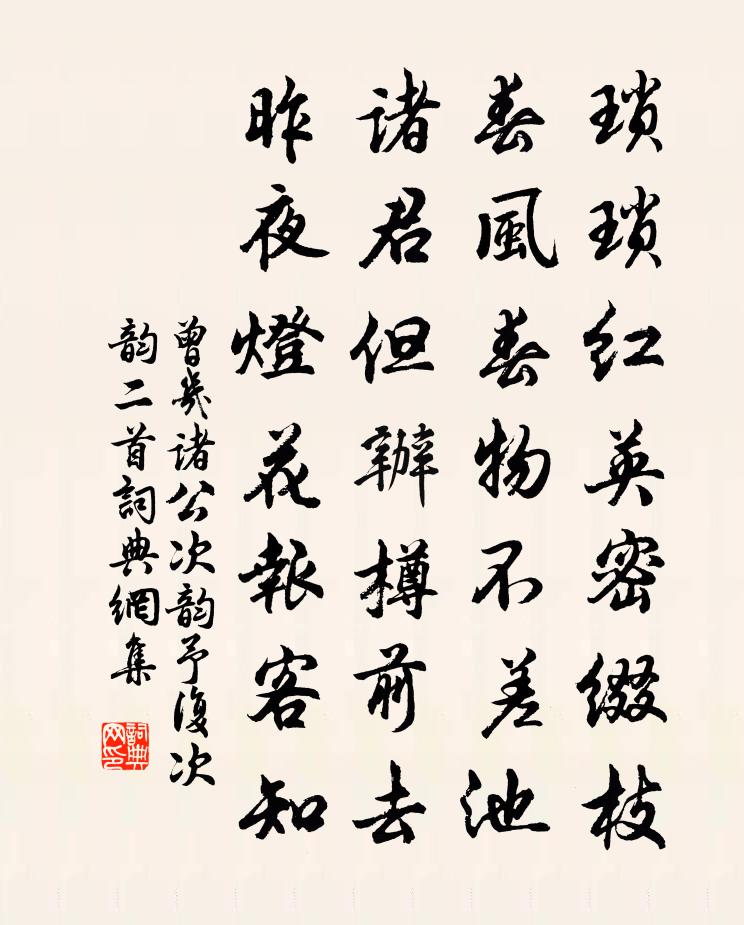 瑣瑣红英密缀枝
春風春物不差池
诸君但辦樽前去
昨夜燈花報客知
曾幾诸公次韵予復次
韵二首詞典網集
詞典网印